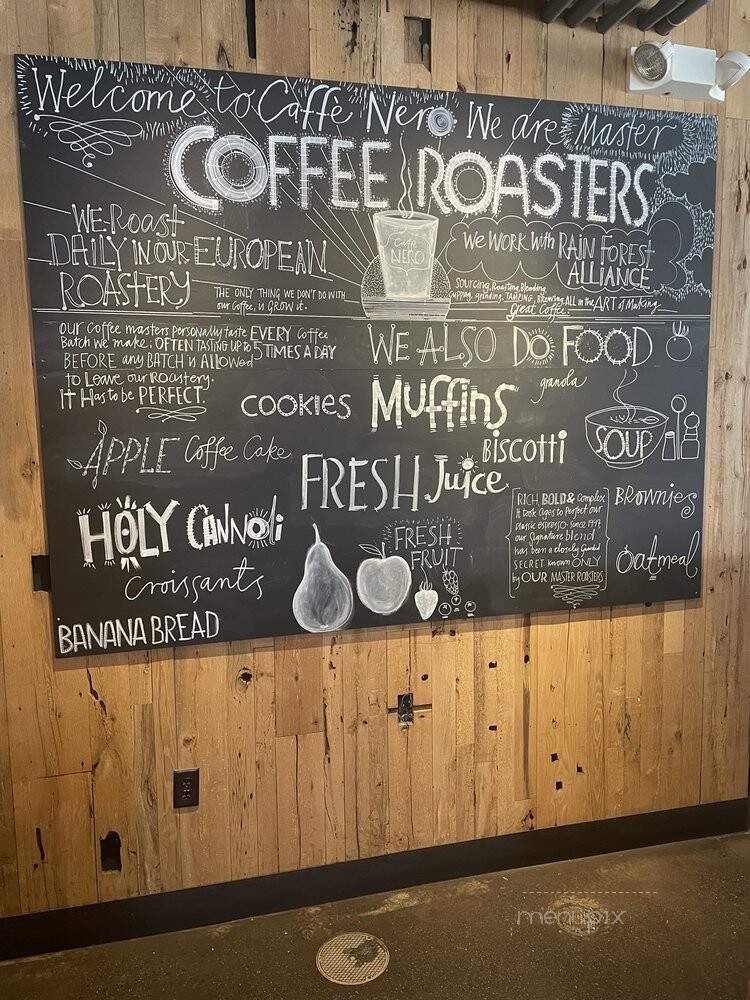 Welcome to Caffè Nero We are Master
COFFEE ROASTERS
WE Roast
DAILY IN OUR EUROPEAN
ROASTERY
THE ONLY THING WE DON'T DO WITH
our Coffee, is GROW it.
Caffè
NERO
We WORK With RAIN FOREST
ALLIANCE
Sourcing, Roasting, Blending,
Cupping, grinding, TAMPING, Brewing ALL in the ART of Making
Great Coffee.
OUR Coffee masters personally taste EVERY Coffee
Batch we make; OFTEN TASTING UP to 5 TIMES A DAY
BEFORE any BATCH is Allowed
to Leave our Roastery.
IT Has to be PERFECT.
WE ALSO Do FOOD
granola
COOKIES
MUFFINS
SOUP
APPLE Coffee Cake
Biscotti
FRESH Juice
HOLY CANNOLI
Croissants
BANANA BREAD
FRESH
FRUIT
RICH, BOLD & Complex
It took Ages to Perfect our
classic espresso-since 1997
our Signature blend
has been a closely Guarded
SECRET known ONLY
by OUR MASTER ROASTERS
BROWNies
Oatmeal
menupix